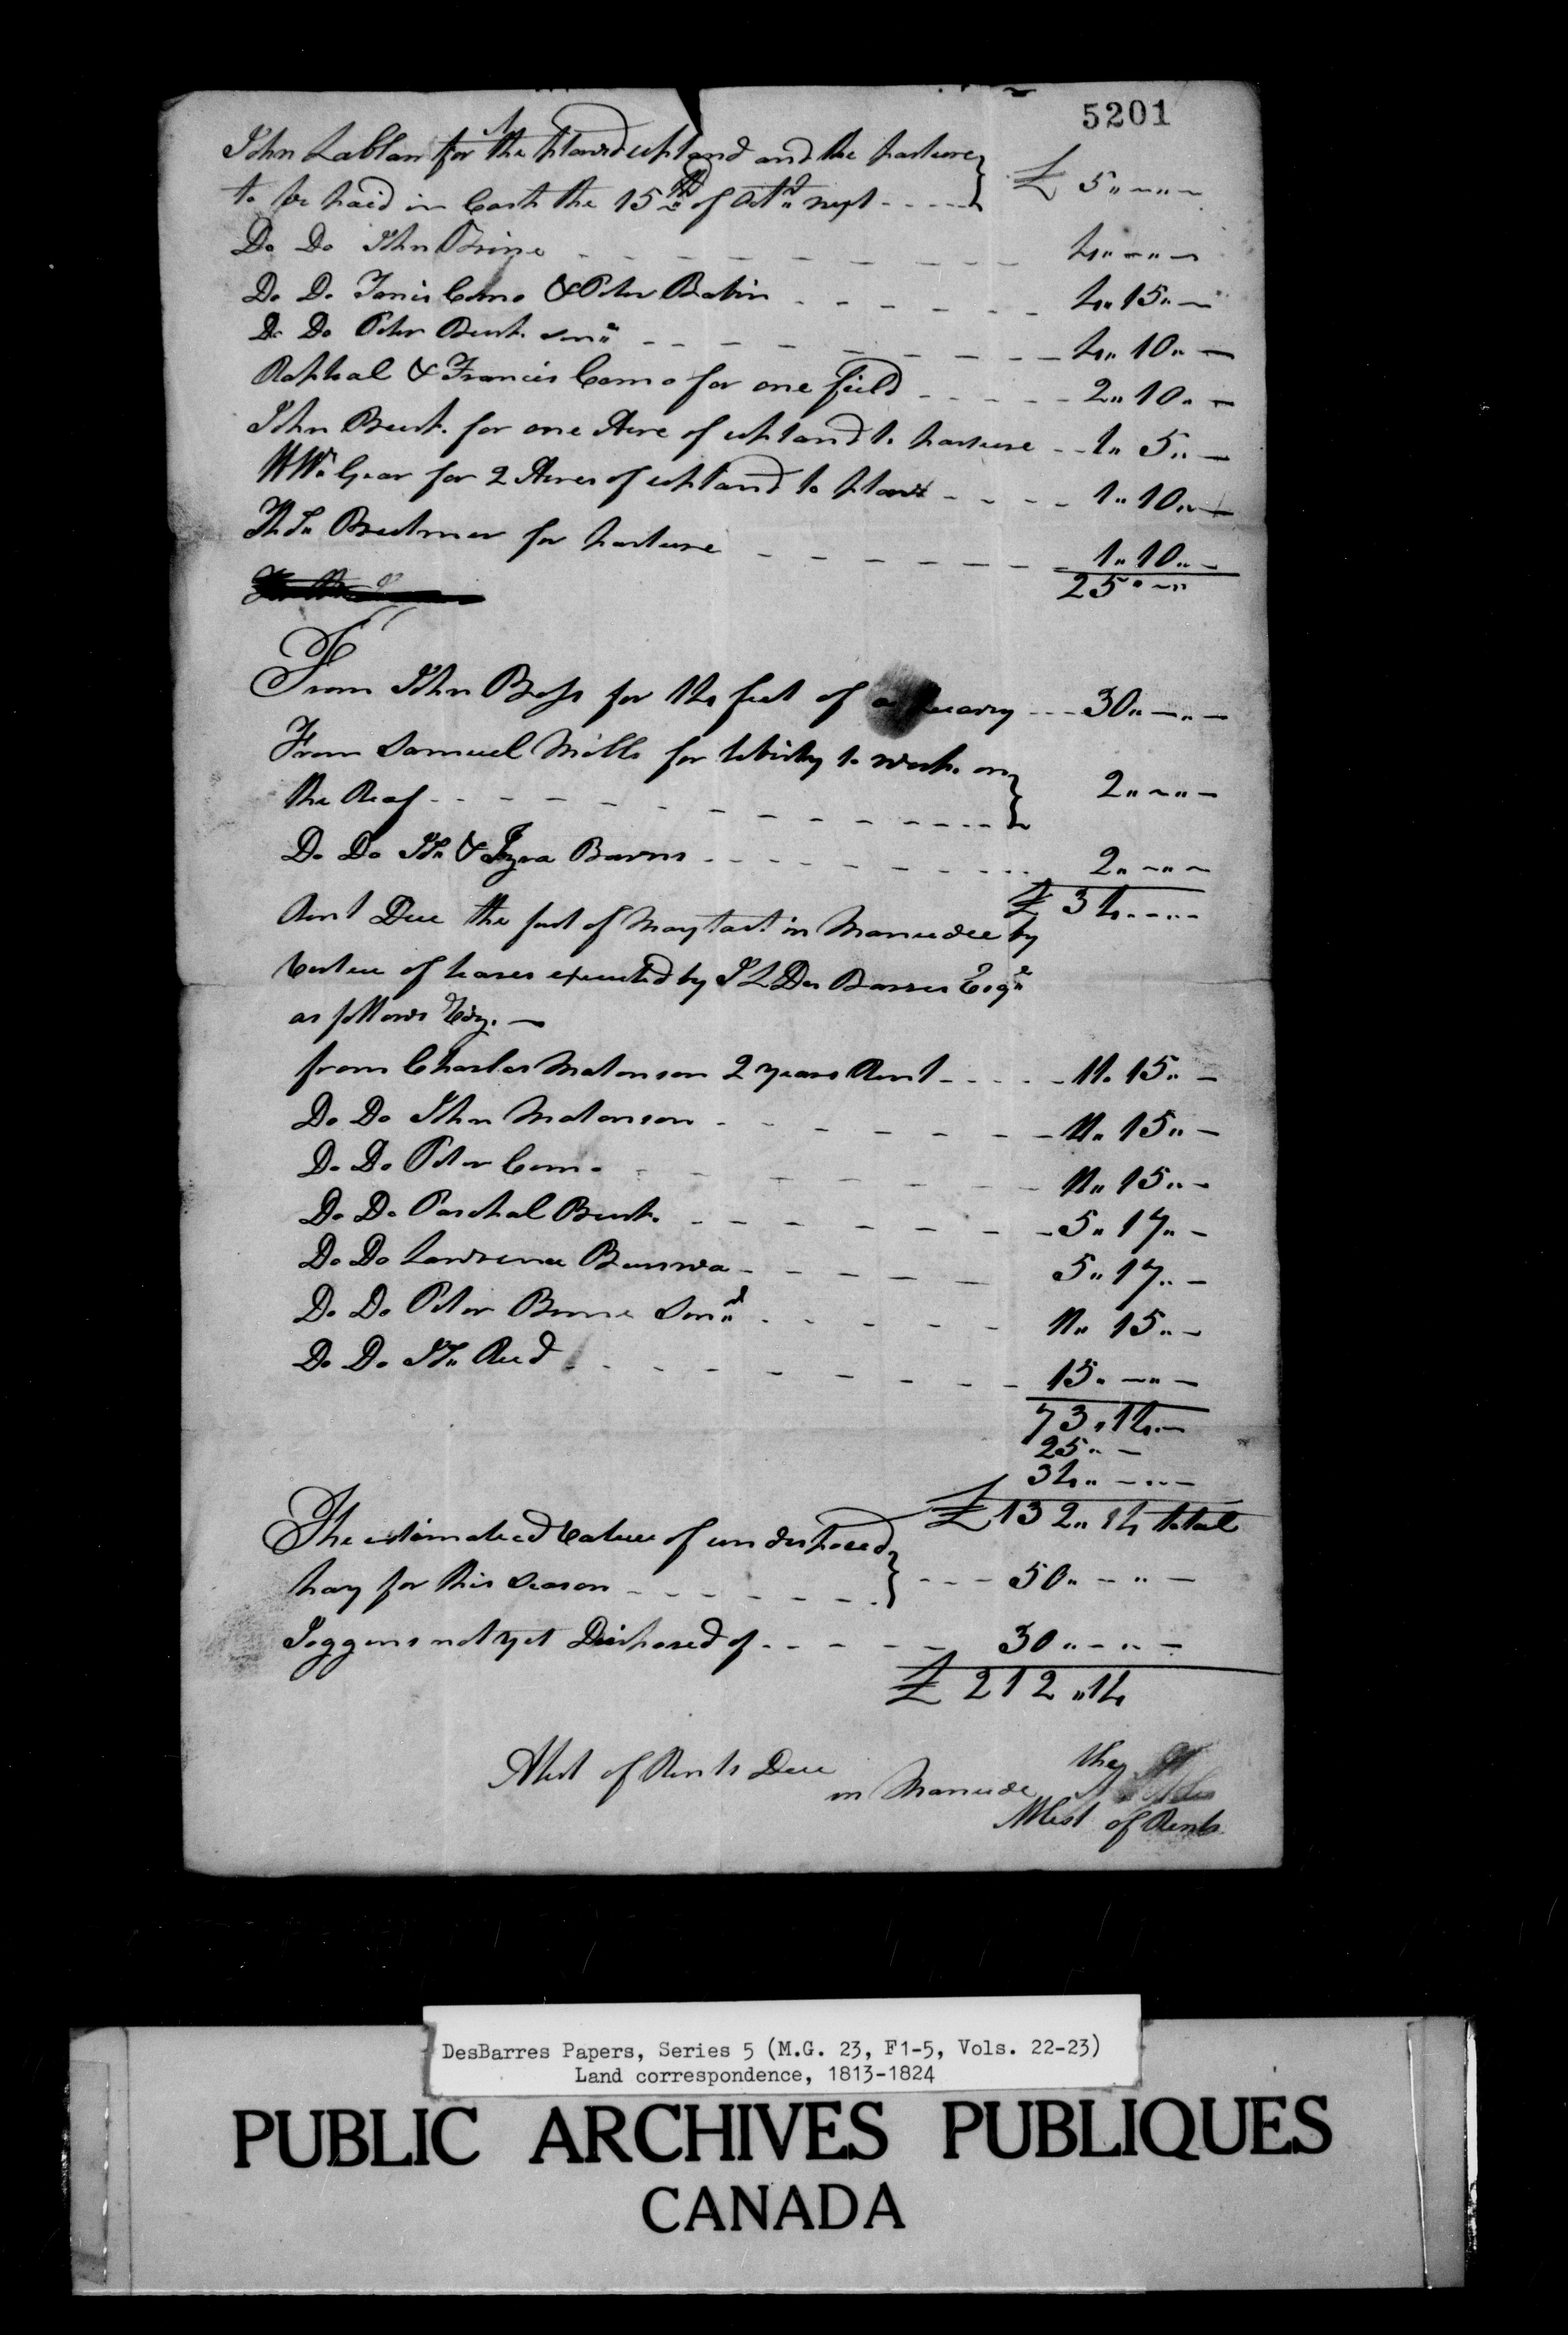 5201
John Lablan for the plowd upland and the pasture } £ 5 „ — „ —
to be paid in Cash the 15th of Octr next - - - -
Do Do John Brine - - - - 4 „ — „ —
Do Do Fanis Como & Peter Babin - - - - 4 „ 15 „ —
Do Do Peter Burk senr - - - - 4 „ 10 „ —
Raphal & Francis Como for one field - - - - 2 „ 10 „ —
John Burk for one Acre of upland to pasture - - 1 „ 5 „ —
Wm Gear for 2 Acres of upland to plow - - - - 1 „ 10 „ —
Ths Brutmer for pasture - - - - 1 „ 10 „ —
25 „ — „
From John Boss for 14 feet of a Quarry - - - 30 „ — „ —
From Samuel Mills for liberty to work on } 2 „ — „ —
the Reaf - - - -
Do Do Jn & Ezra Barns - - - - 2 „ — „ —
£ 34 - - - -
Rent Due the first of May last in Manudee by
Vertue of leases executed by J L Des Barres Esqr
as follows Viz. —
from Charles Matonson 2 years Rent - - - - 11 „ 15 „ —
Do Do John Matonson - - - - 11 „ 15 „ —
Do Do Peter Como - - - - 11 „ 15 „ —
Do Do Paschal Burk - - - - 5 „ 17 „ —
Do Do Lawrence Burswa - - - - 5 „ 17 „ —
Do Do Peter Brine Senr - - - - 11 „ 15 „ —
Do Do Jn Reed - - - - 15 „ — „ —
73 „ 14 „ —
25 „ —
34 „ — „ —
£ 132 „ 14 total
The estimated Value of undisposed } - - - 50 „ — „ —
hay for this Season - - - -
Joggens not yet Disposed of - - - - 30 „ — „ —
£ 212 „ 14
Alist of Rents Due
the
in Manude
Alist of Rents
DesBarres Papers, Series 5 (M.G. 23, F1-5, Vols. 22-23)
Land correspondence, 1813-1824
PUBLIC ARCHIVES PUBLIQUES
CANADA